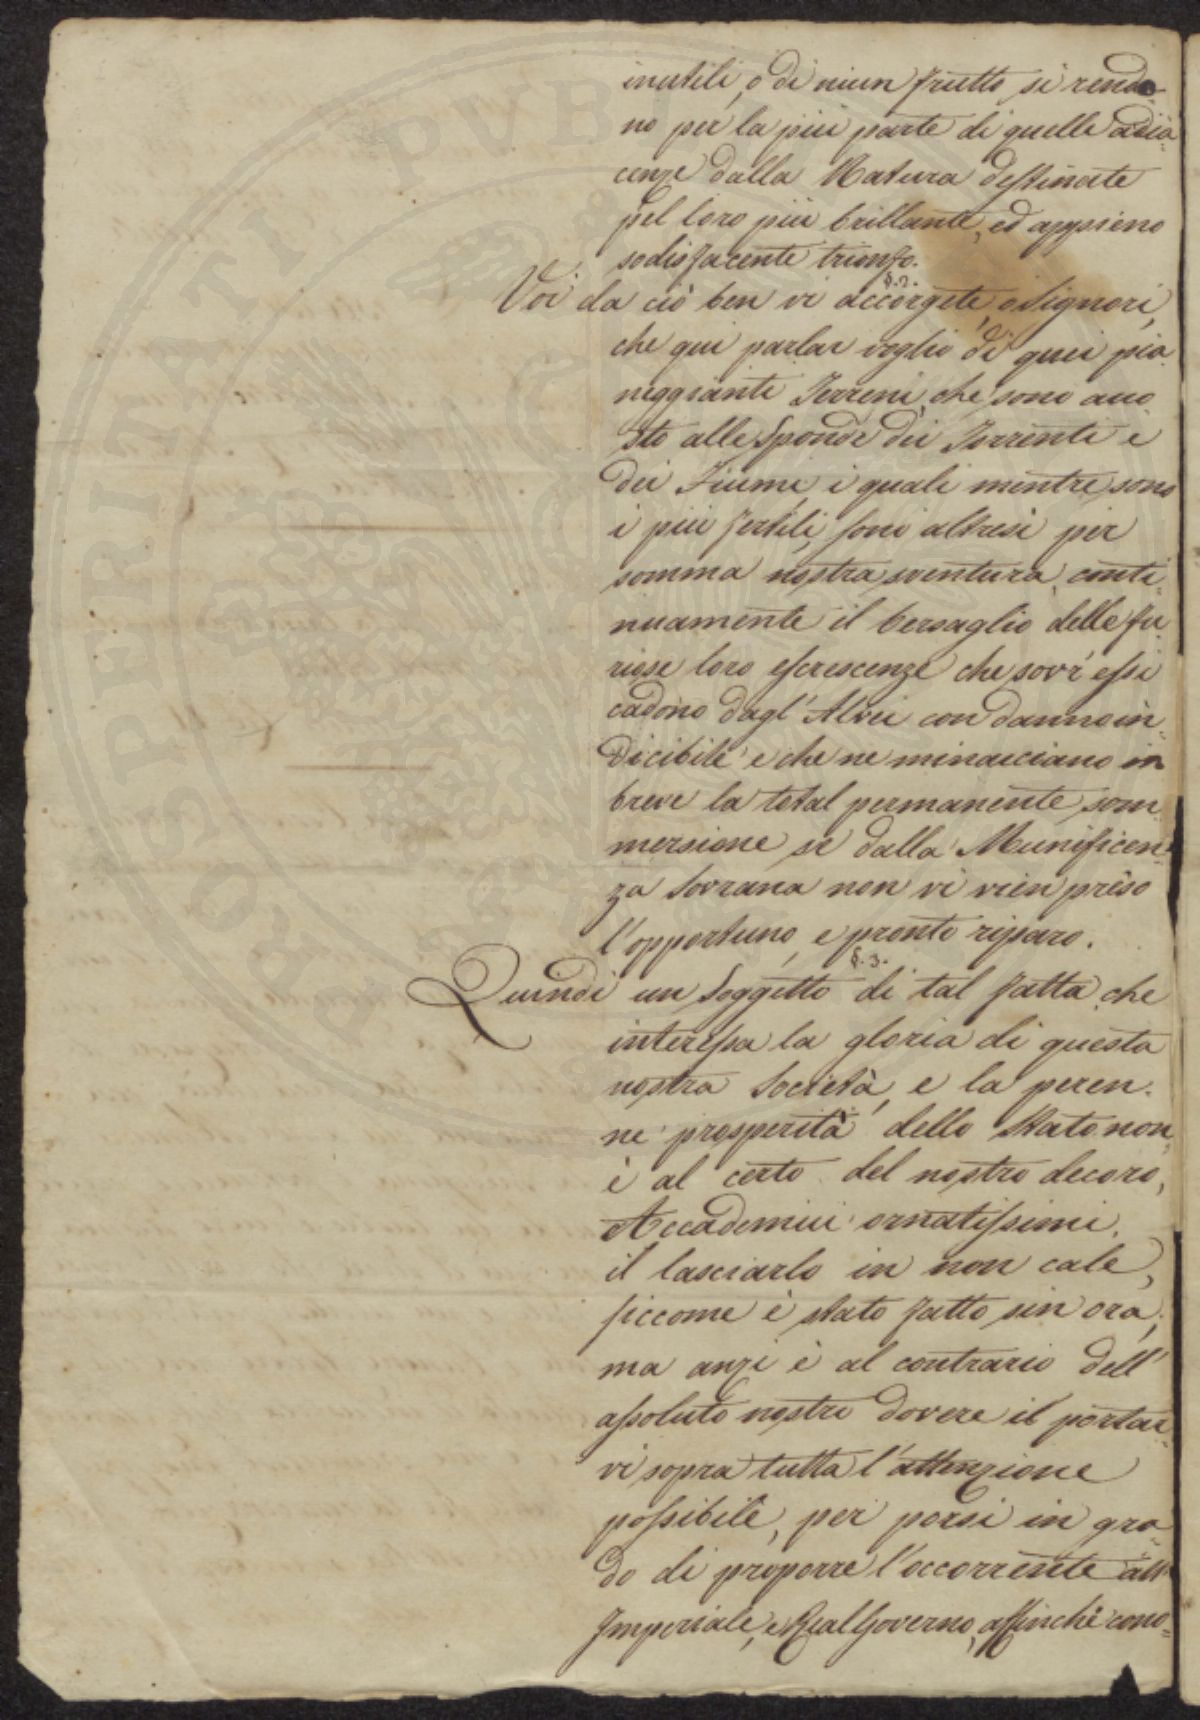 inutili, o di niun frutto si rendo-
no per la più parte di quelle adia-
cenze dalla Natura destinate
pel loro più brillante, ed appieno
sodisfacente trionfo.
§. 2.
Voi da ciò ben vi accorgete, o Signori,
che qui parlar voglio di quei pia-
neggianti Terreni, che sono acco-
sto alle Sponde dei Torrenti e
dei Fiumi, i quali mentre sono
i più fertili, sono altresì per
somma nostra sventura, conti-
nuamente il bersaglio delle fu-
riose loro escrescenze che sovr'essi
cadono dagl'Alvei con danno in-
dicibile e che ne minacciano in
breve la total permanente som-
mersione se dalla Munificen-
za Sovrana non vi vien preso
l'opportuno, e pronto riparo.
§. 3.
Quindi un Soggetto di tal fatta che
interessa la gloria di questa
nostra Società, e la peren-
ne prosperità dello Stato non
è al certo del nostro decoro,
Accademici ornatissimi,
il lasciarlo in non cale,
siccome è stato fatto sin ora;
ma anzi è al contrario dell'
assoluto nostro dovere il portar-
vi sopra tutta l'attenzione
possibile, per porsi in gra-
do di proporre l'occorrente all'
Imperiale, e Real Governo, affinchè cono-
PROSPERITATI PUBL